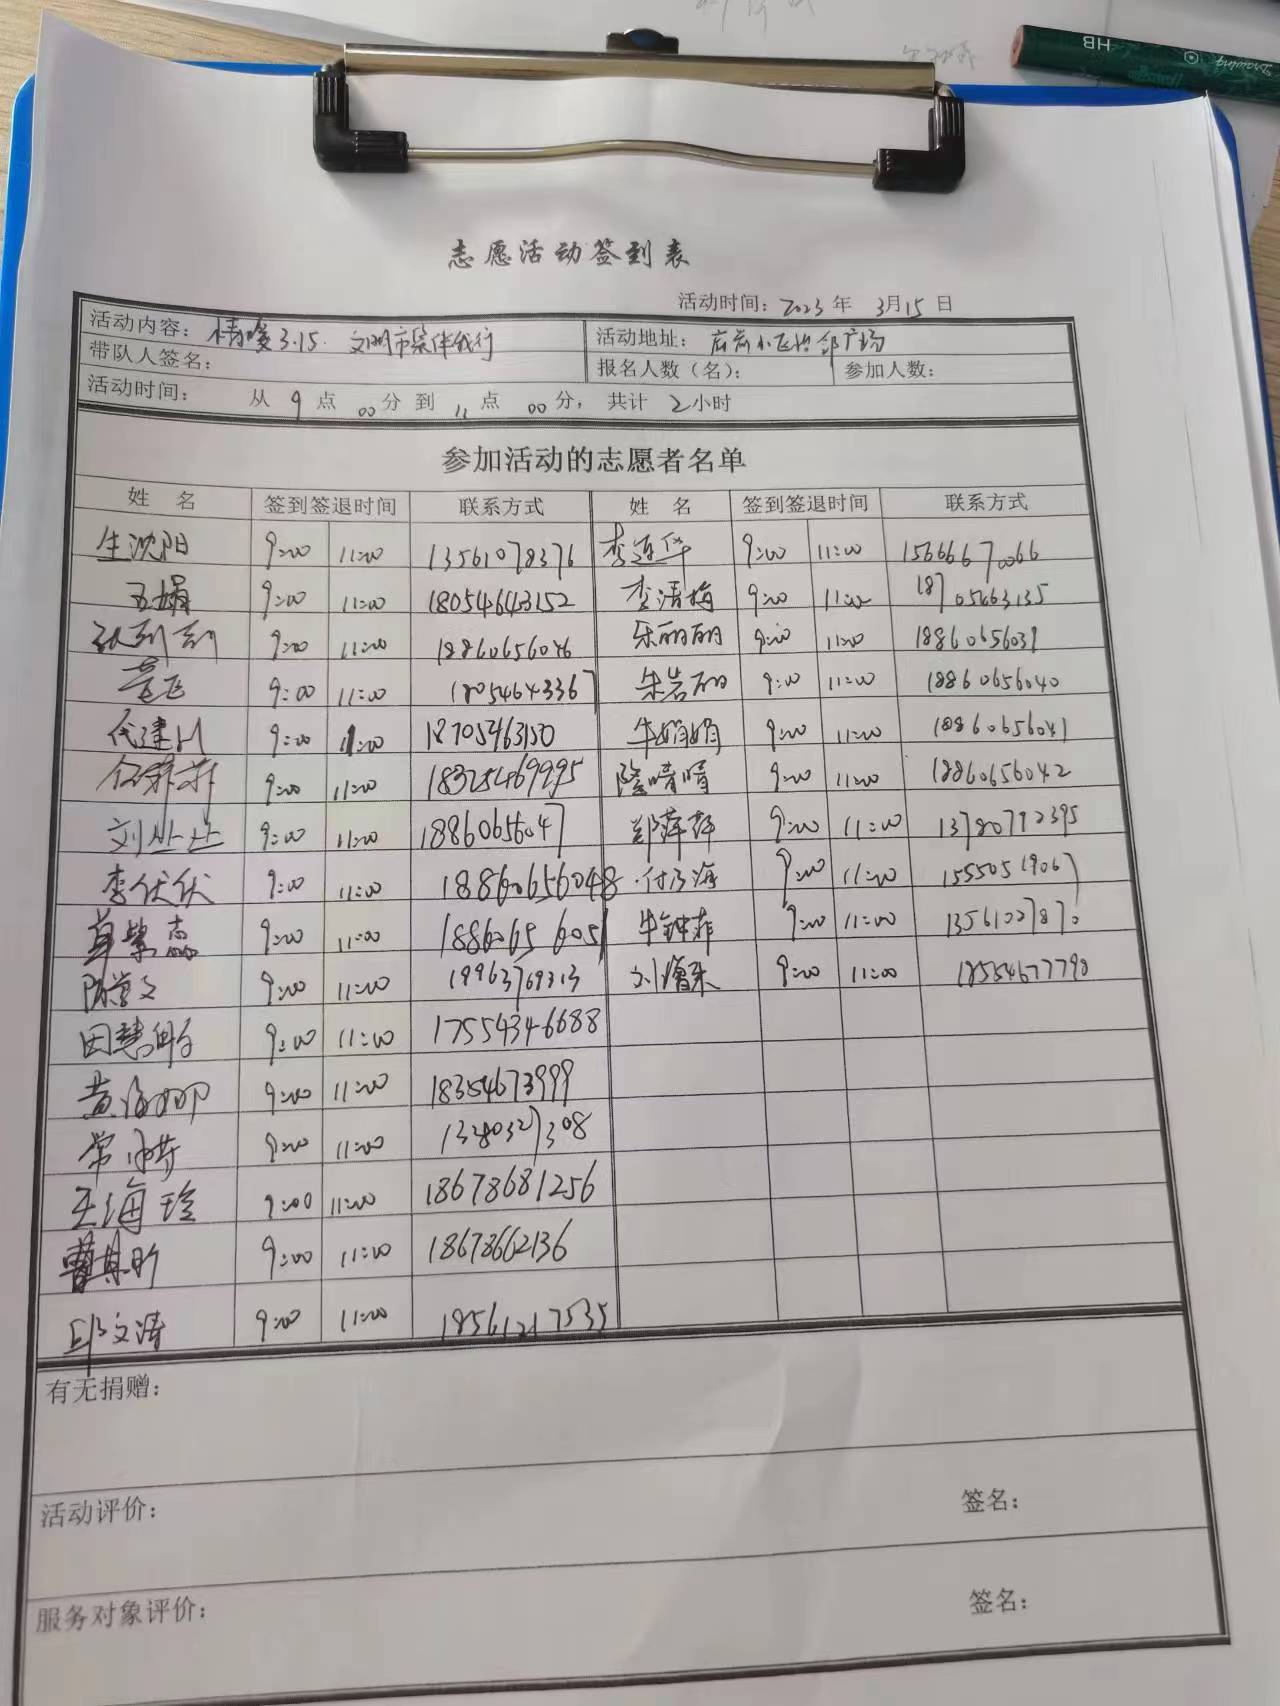 HB
Drawing
志愿活动签到表
活动时间：2023年 3月15日
活动内容：情暖3.15.文明市集伴我行 活动地址：
带队人签名： 报名人数（名）： 参加人数：
活动时间： 从 9 点 00分 到 11 点 00分， 共计 2小时
参加活动的志愿者名单
姓 名 签到签退时间 联系方式 姓 名 签到签退时间 联系方式
生沈阳 9:00 11:00 13561078376 李连华 9:00 11:00 15666670066
王娟 9:00 11:00 18054643152 李清梅 9:00 11:00 18705463135
9:00 11:00 18860656046 朱丽丽 9:00 11:00 18860656039
董飞 9:00 11:00 18054643367 朱岩丽 9:00 11:00 18860656040
9:00 11:00 18705463150 牛娟娟 9:00 11:00 18860656041
9:00 11:00 18325469995 隆晴晴 9:00 11:00 18860656042
刘丛丛 9:00 11:00 18860656047 郑萍萍 9:00 11:00 13780792395
李伏伏 9:00 11:00 18860656048 付乃海 9:00 11:00 15550519067
9:00 11:00 18860656051 牛钟菲 9:00 11:00 13561027870
陈学文 9:00 11:00 19963769313 9:00 11:00 18554677790
9:00 11:00 17554346688
黄海娜 9:00 11:00 18354673999
9:00 11:00 13280327308
王海玲 9:00 11:00 18678681256
9:00 11:00 18678662136
邱文涛 9:00 11:00 18561217535
有无捐赠：
活动评价： 签名：
服务对象评价： 签名：